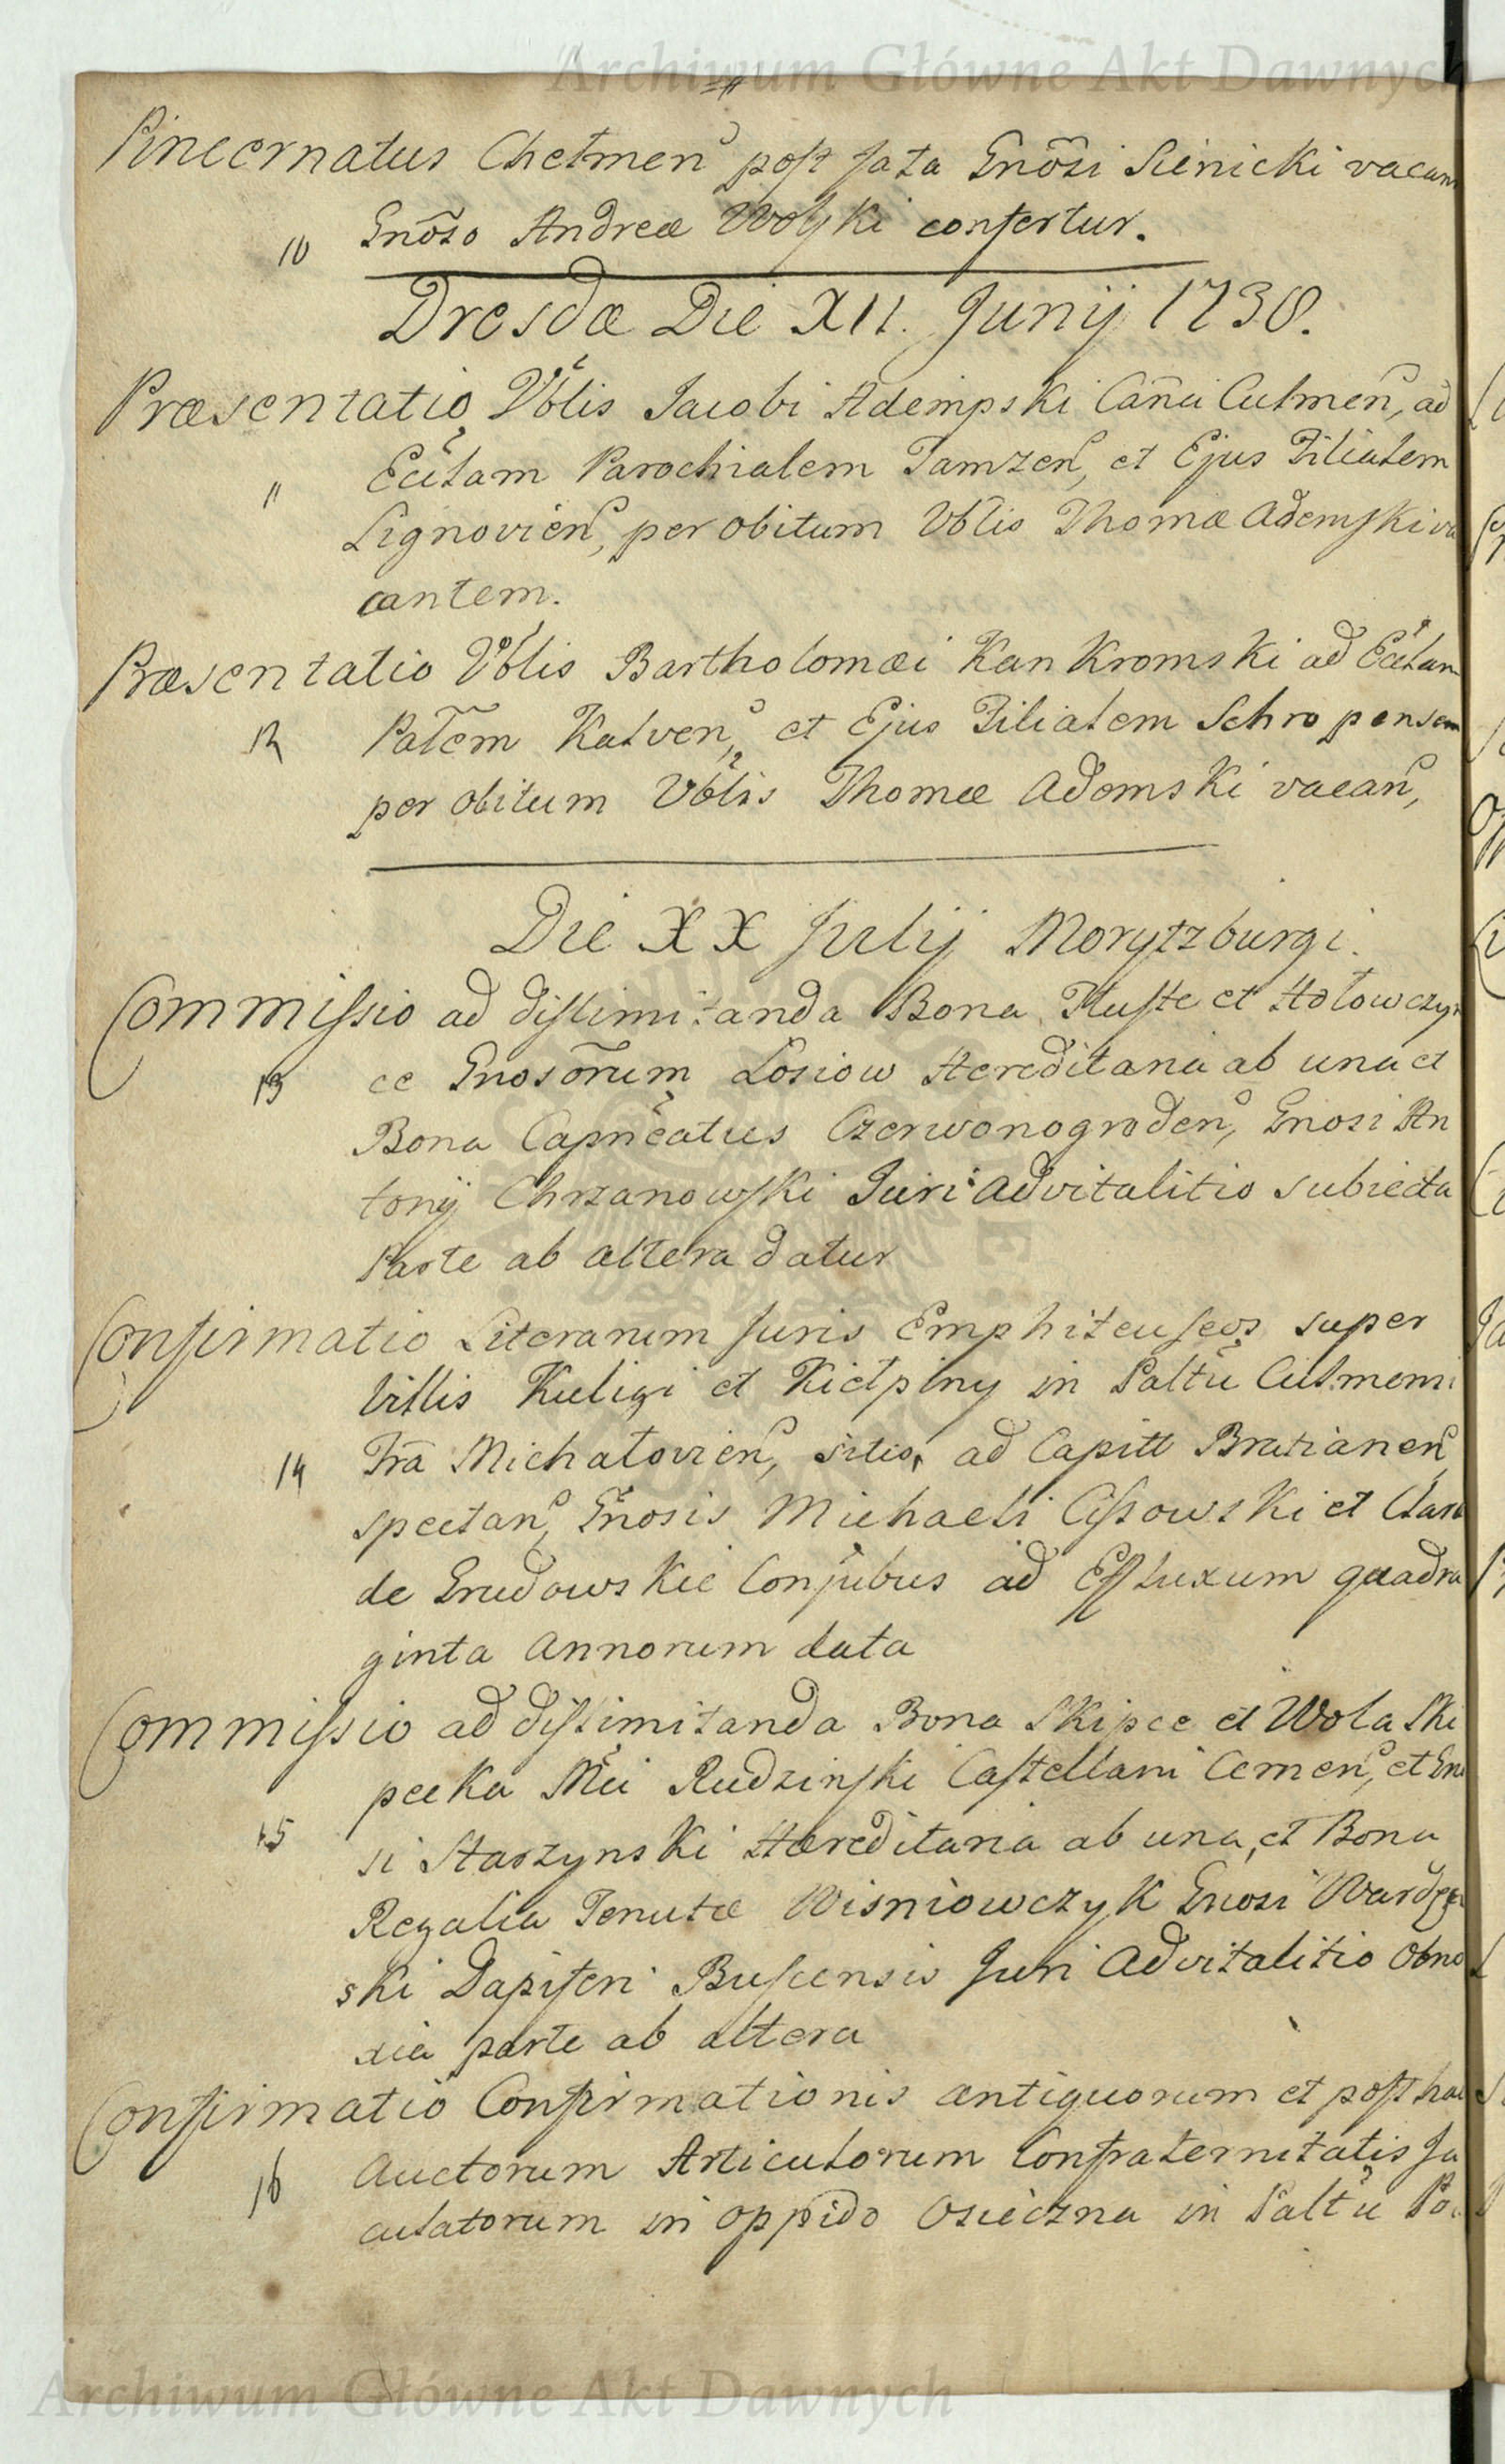 Archiwum Główne Akt Dawnych
Pincernatus Chełmen post fata Gnõsi Sienicki vacan
10 Gnõso Andreæ Woyski confertur.
Dresdæ Die XII. Junij 1730.
Præsentatio Vblis Jacobi Adempski Cañci Culmen, ad
Ecclam Parochialem Tamzen, et Ejus Filialem
11
Lignovien, per obitum Vblis Thomæ Ademski va
cantem.
Præsentatio Vblis Bartholomæi Kankromski ad Ecclam
12 Palem Kalven, et Ejus Filialem Schropensem
per obitum Vblis Thomæ Ademski vacan,
Die XX Julij Morytzburgi.
Commissio ad dislimitanda Bona Tłuste et Hołowczyn
13 ce Gnosorum Łosiow Hereditaria ab una et
Bona Capneatus Czerwonogroden, Gnosi An
tonij Chrzanowski Juri Advitalitio subiecta
Parte ab altera datur
Confirmatio Literarum Juris Emphiteuseos super
Villis Kuligi et Kiełpiny in Paltu Culmem:
14 Tra Michałovien, sitis, ad Capitt Bratianen,
spectan, Gnosis Michaeli Cissowski et Clara
de Grudowskie Conjubus ad Effluxum quadra
ginta Annorum data
Commissio ad dislimitanda Bona Skipce et Wola Ski
pecka Mci Rudzinski Castellani Cernen, et Gno
15
si Starzynski Hæreditaria ab una, et Bona
Regalia Tenutæ Wisniowczyk Gnosi
ski Dapiferi Buscensis Juri Advitalitio Obno
xia parte ab altera
Confirmatio Confirmationis antiquorum et post hac
16 Auctorum Articulorum Confraternitatis Ja
culatorum in Oppido Osieczna in Paltu Po
Archiwum Główne Akt Dawnych